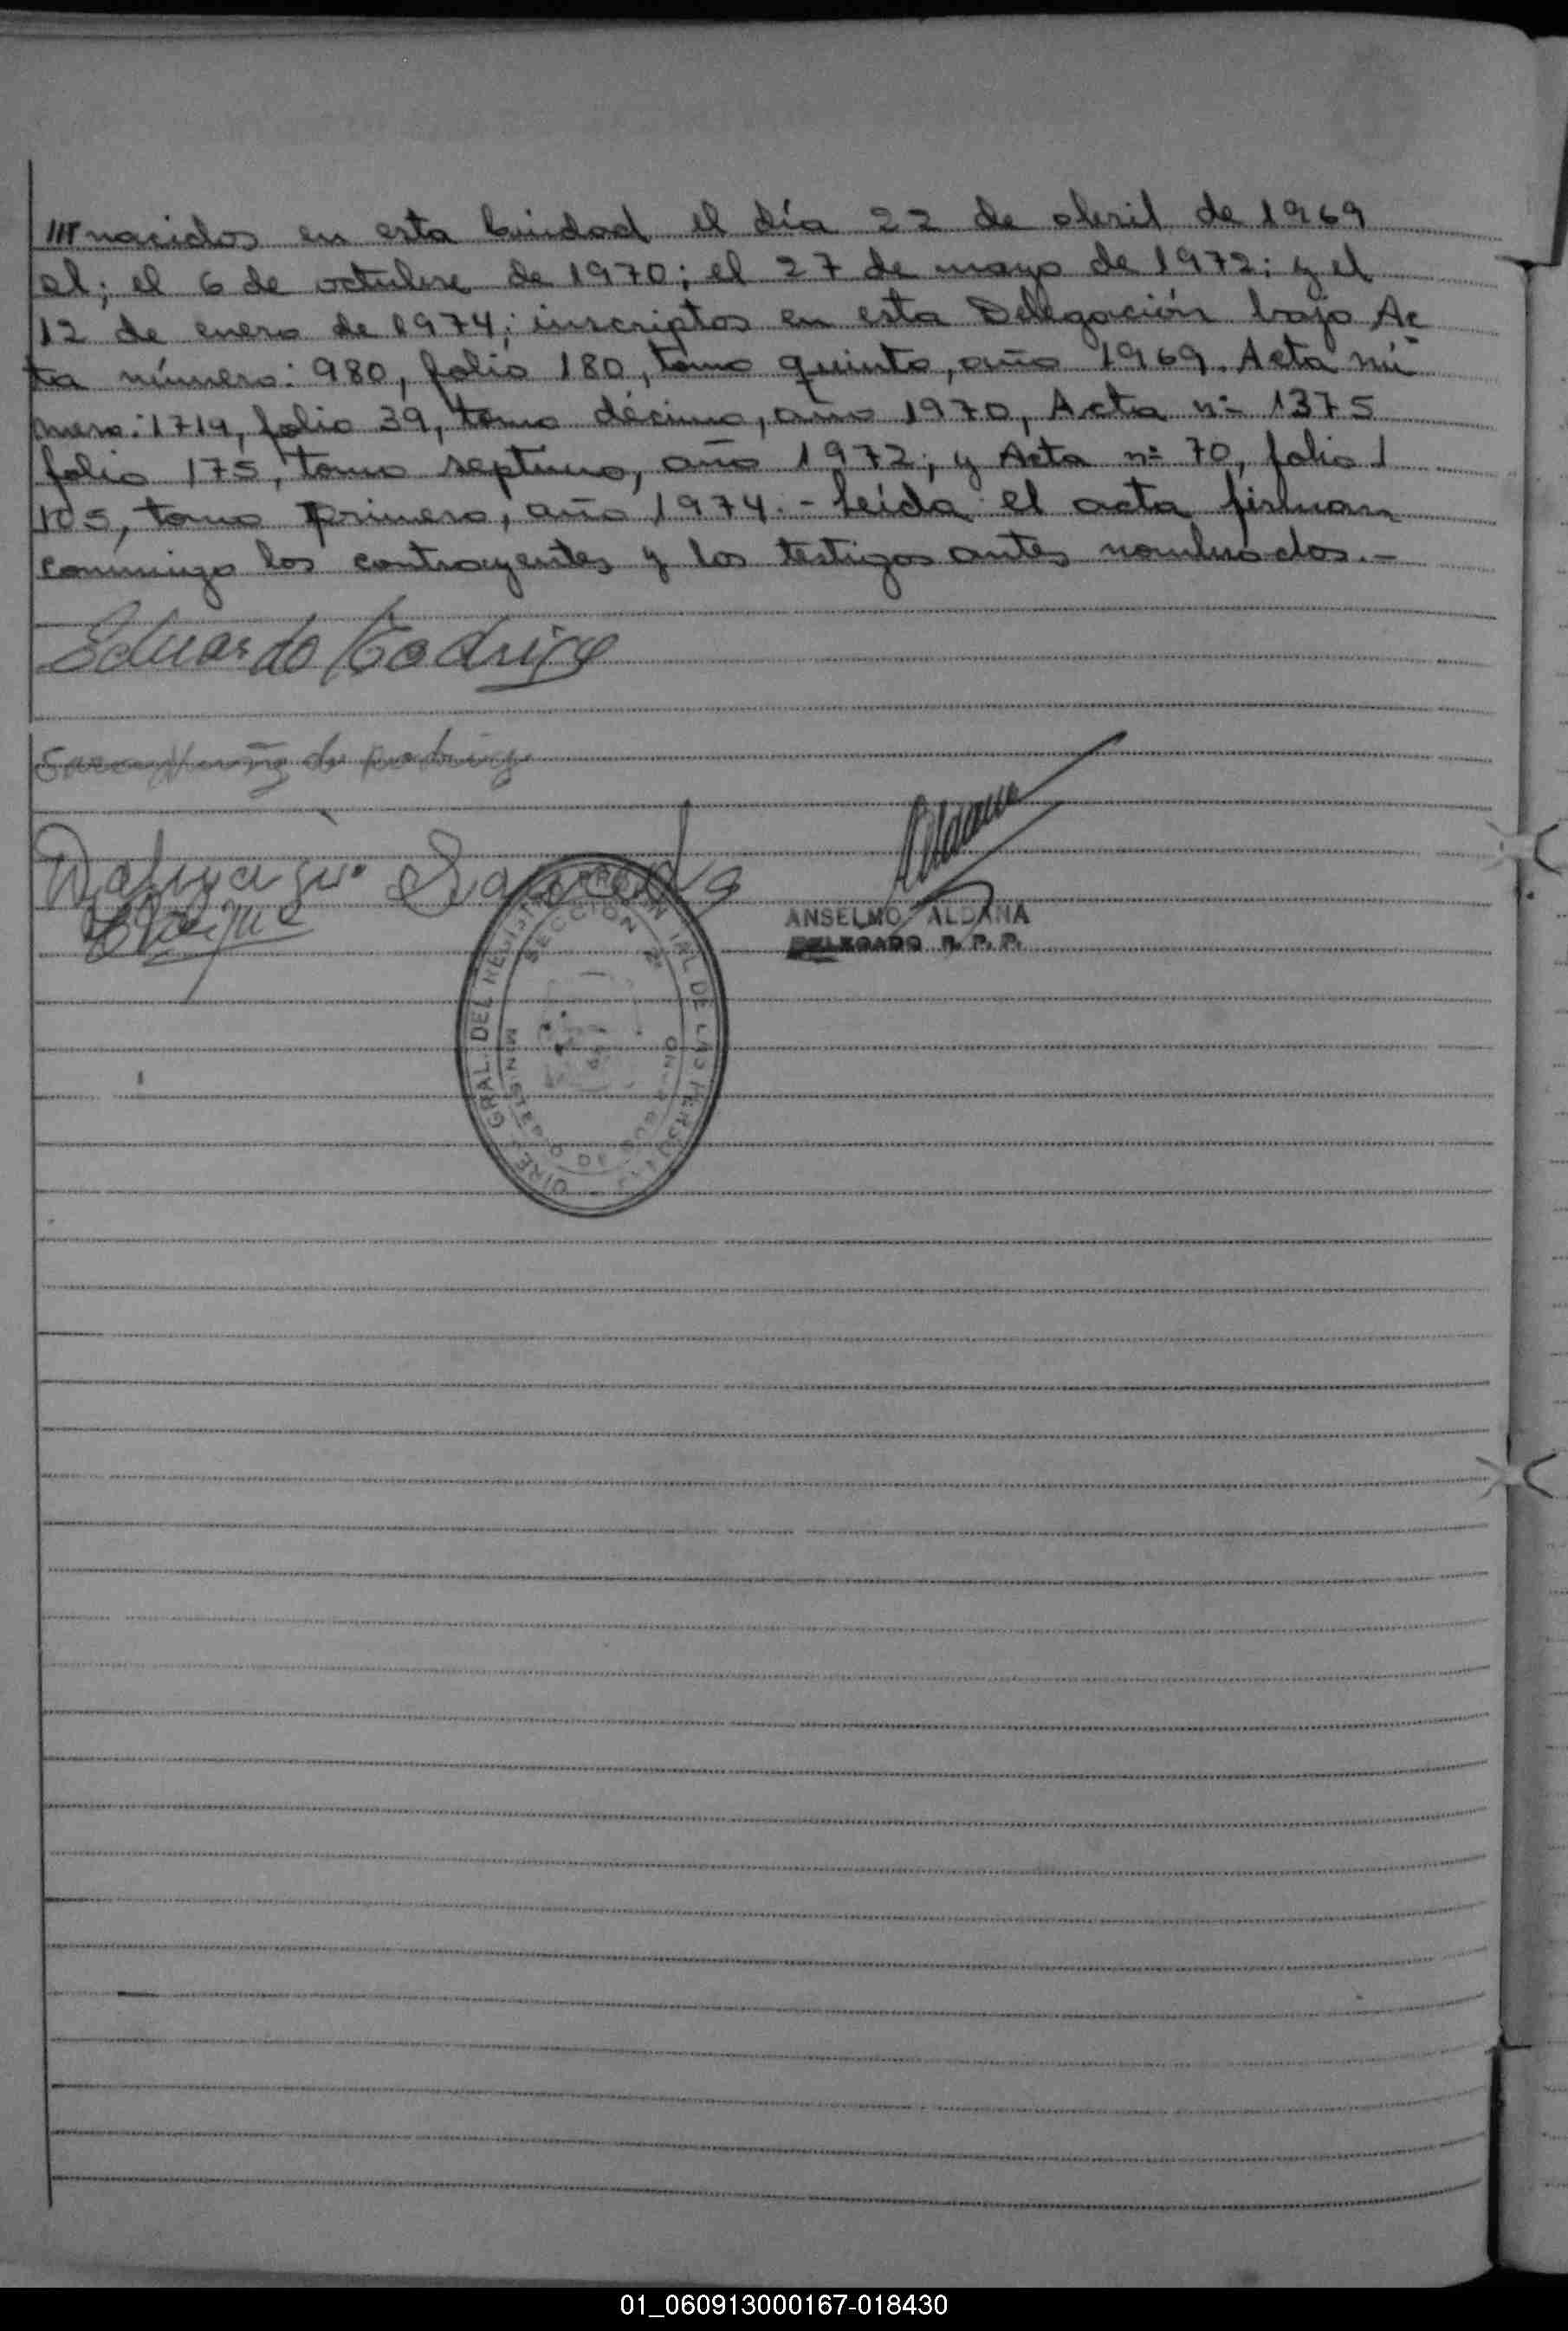 nacidos en esta ciudad el día 22 de abril de 1969
el; el 6 de octubre de 1970; el 27 de mayo de 1972; y el
12 de enero de 1974; inscriptos en esta Delegación bajo Ac
ta número: 980, folio 180, tomo quinto, año 1969. Acta nú
mero: 1719, folio 39, tomo décimo, año 1970, Acta nº 1375
folio 175, tomo septimo, año 1972; y Acta nº 70, folio
105, tomo primero, año 1974.- Leída el acta firman
conmigo los contrayentes y los testigos antes nombrados.-
Eduardo Rodrigo
de
Saavedra
ANSELMO ALDANA
DELEGADO R. P. P.
DIRE. GRAL. DEL REGISTRO PROVINCIAL DE LAS PERSONAS
SECCION 2ª
01_060913000167-018430